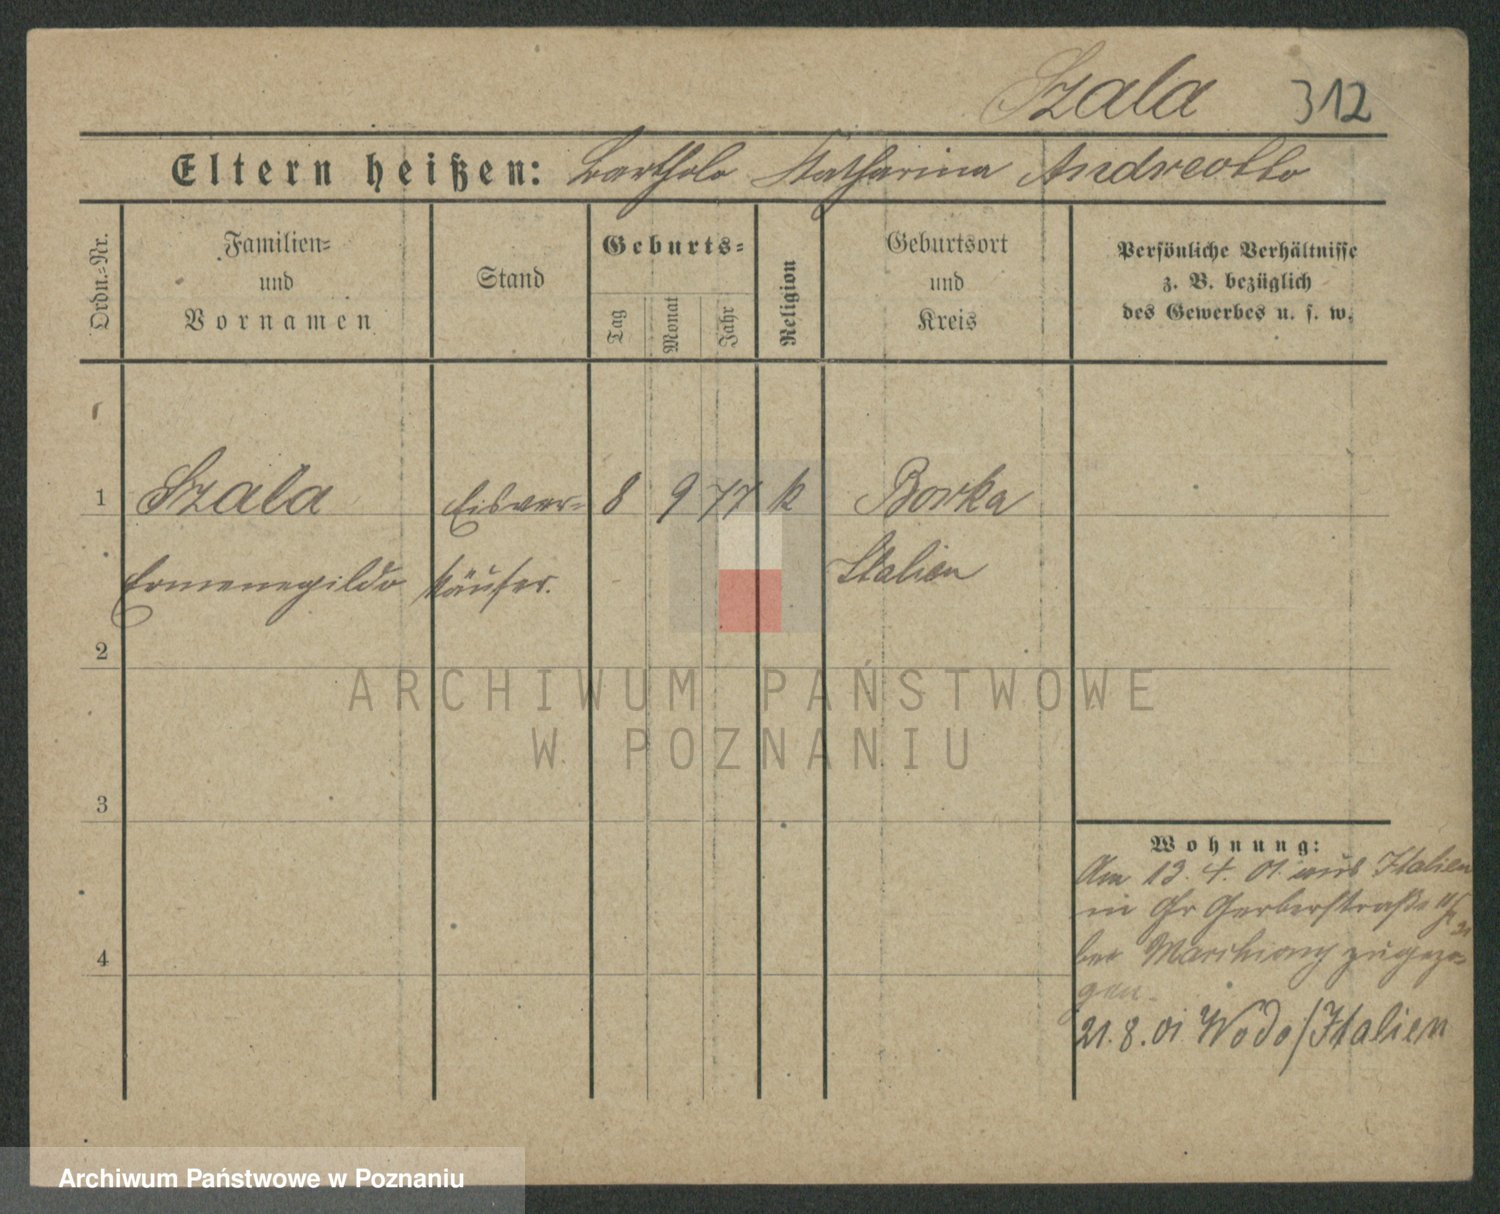 Szala 312
Eltern heißen: Bartholo Katharina Andreollo
Ordn.-Nr.
Familien-
und
Vornamen
Stand
Geburts-
Tag
Monat
Jahr
Religion
Geburtsort
und
Kreis
Persönliche Verhältnisse
z. B. bezüglich
des Gewerbes u. s. w.
1 Szala Eisver- 8 9 77 k Borka
Ermenegildo käufer. Italien
2
ARCHIWUM PAŃSTWOWE
W POZNANIU
3
Wohnung:
Am 13. 4. 01. aus Italien
in Gr Gerberstraße
bei zugezo-
gen.
4
21. 8. 01 Wodo/Italien
Archiwum Państwowe w Poznaniu